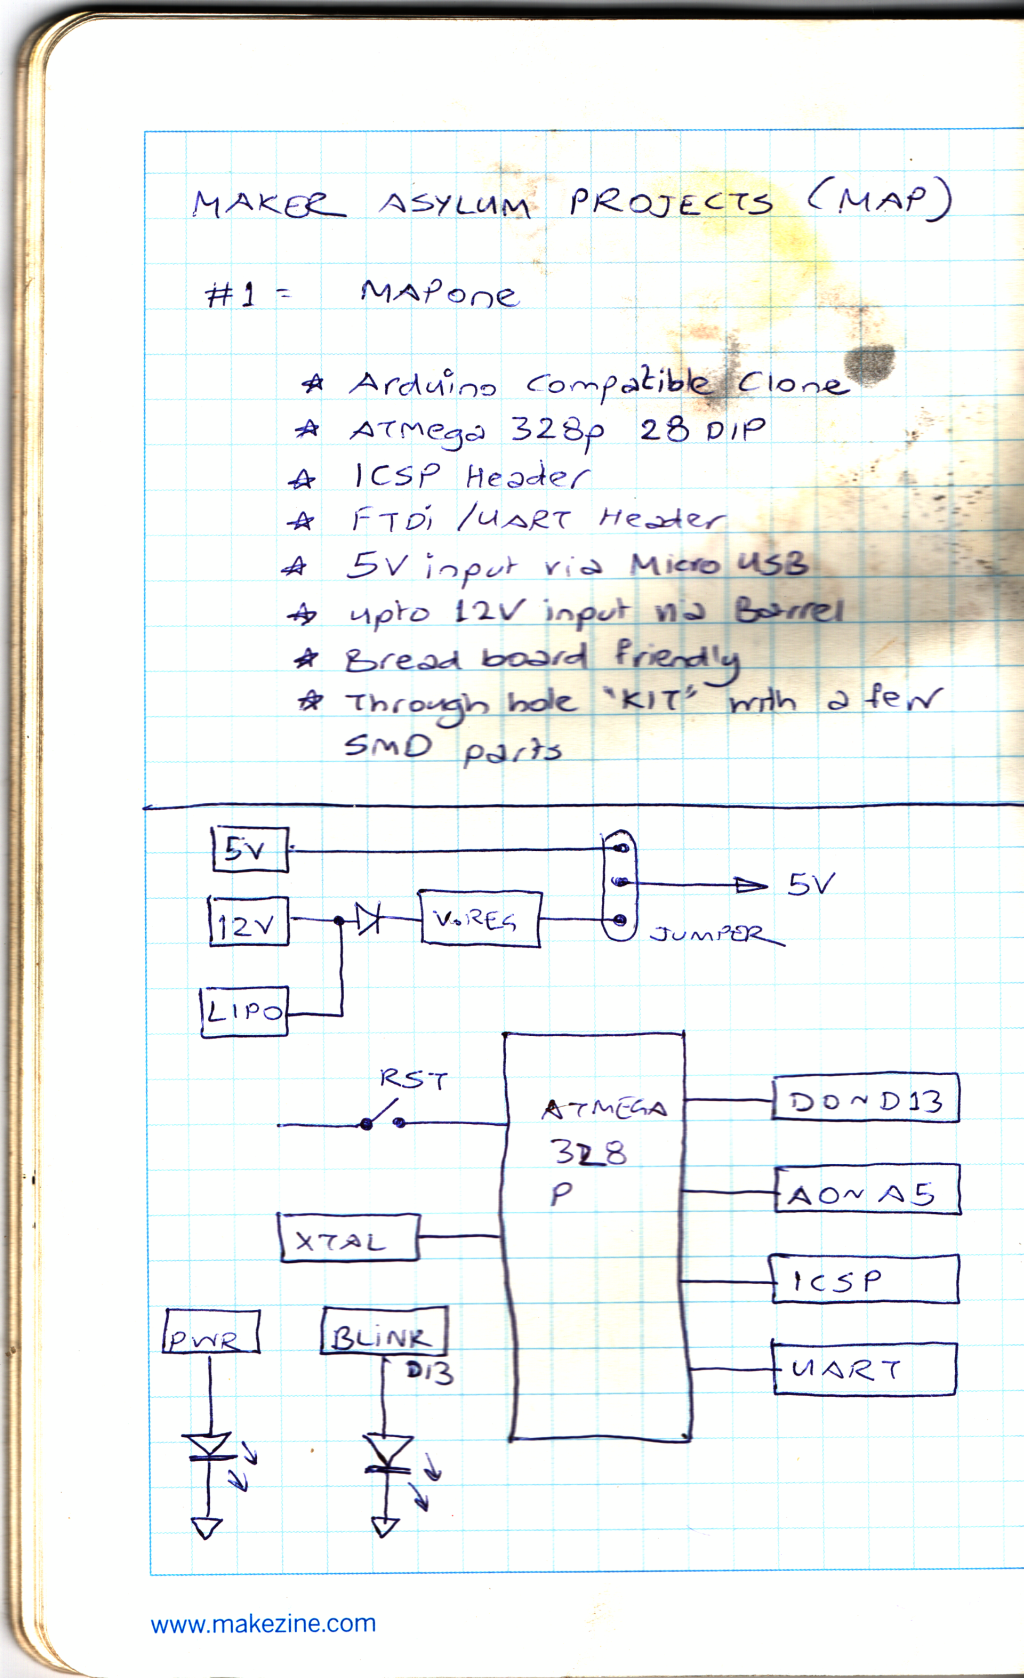 MAKER ASYLUM PROJECTS (MAP)
#1 = MAPone
* Arduino Compatible Clone
* ATMega 328p 28 DIP
* ICSP Header
* FTDi /UART Header
* 5V input via Micro USB
* upto 12V input via Barrel
* Bread board friendly
* Through hole "KIT" with a few
SMD parts
5V
12V
V.REG
5V
JUMPER
LIPO
RST
ATMEGA
328
P
D0~D13
A0~A5
XTAL
ICSP
PWR
BLINK
D13
UART
www.makezine.com